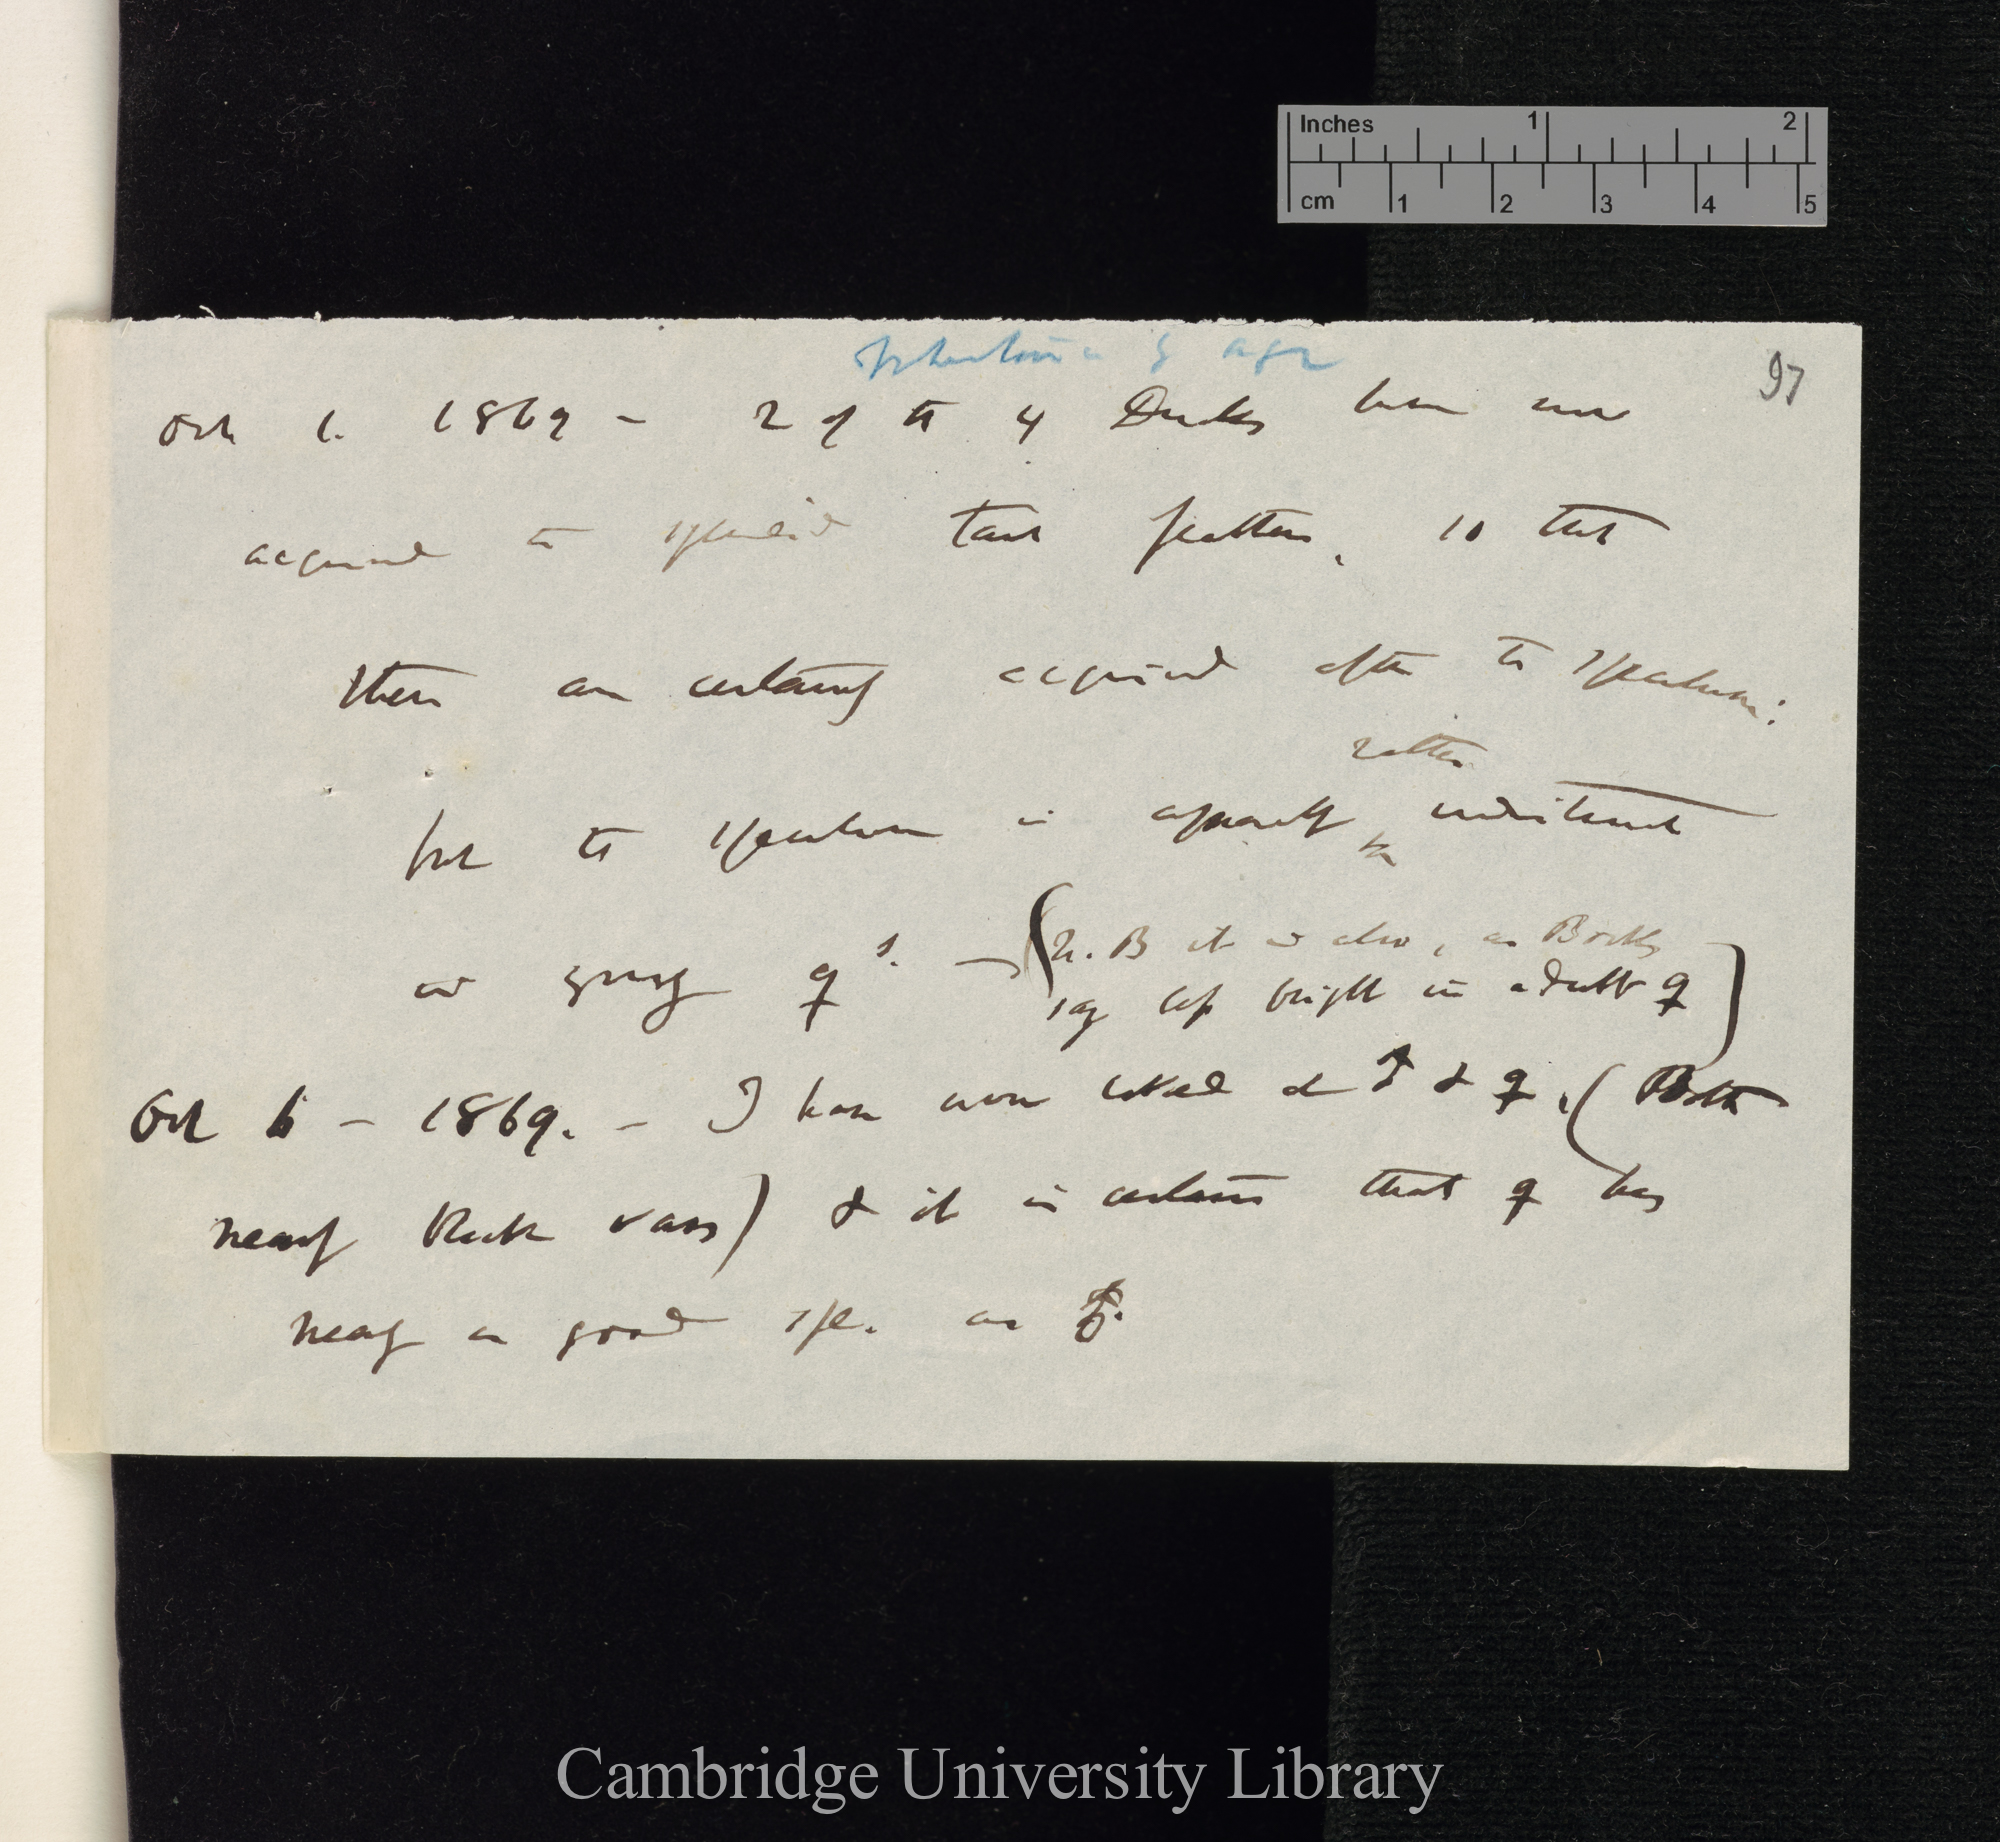 Inches 1 2
cm 1 2 3 4 5
Inheritance & age
97
Oct 1. 1869 — 2 of the 4 Ducks have now
acquired the tail feathers, so that
these are certainly acquired after the speculum:
rather
but the speculum is apparently indistinct
in young ♀s. — (N.B it is also, as Books
say less bright in adult ♀)
Oct 6 — 1869. — I have now looked at ♂ & ♀, (Both
nearly Black vars) & it is certain that ♀ has
nearly as good spe. as ♂.
Cambridge University Library